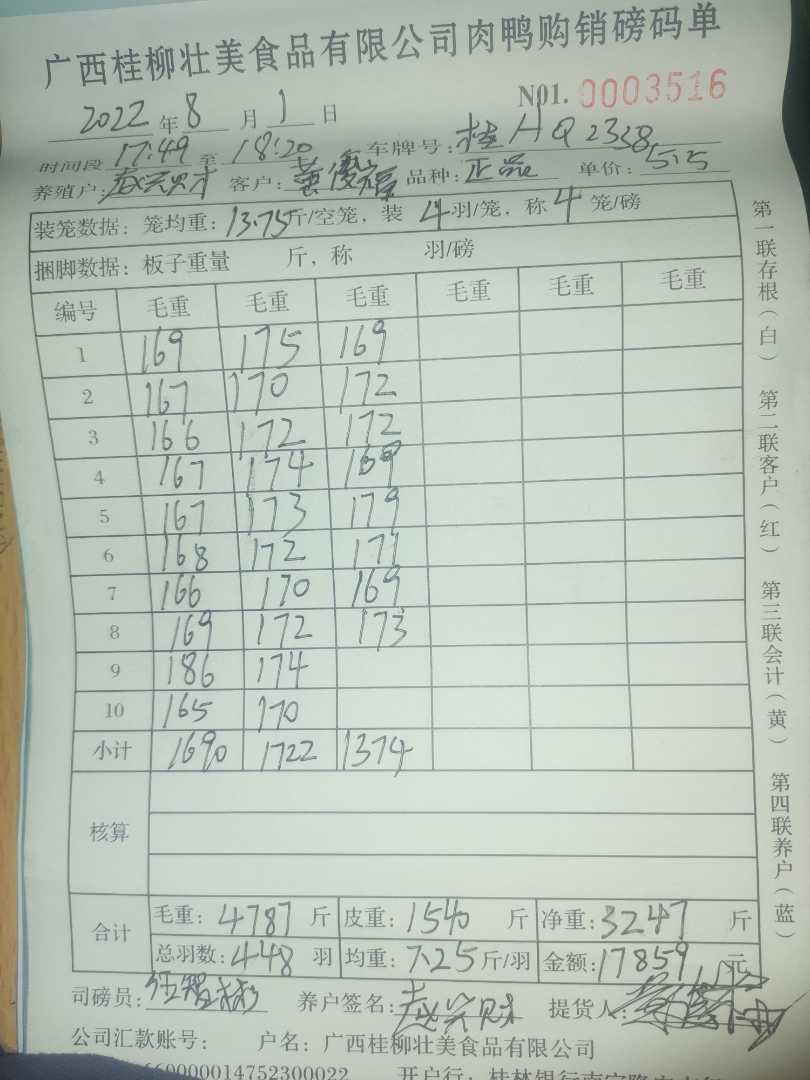 广西桂柳壮美食品有限公司肉鸭购销磅码单
N01. 0003516
2022 年 8 月 1 日
时间段 17:49 至 18:20 车牌号: 桂HQ2338
养殖户: 赵兴财 客户: 品种: 正品 单价: 5.5
装笼数据: 笼均重: 13.75斤/空笼, 装 4羽/笼, 称 4 笼/磅
捆脚数据: 板子重量 斤, 称 羽/磅
编号 毛重 毛重 毛重 毛重 毛重 毛重
1 169 175 169
2 167 170 172
3 166 172 172
4 167 174 169
5 167 173 179
6 168 172 171
7 166 170 169
8 169 172 173
9 186 174
10 165 170
小计 1690 1722 1374
核算
合计
毛重: 4787 斤 皮重: 1540 斤 净重: 3247 斤
总羽数: 448 羽 均重: 7.25斤/羽 金额: 17859 元
司磅员: 养户签名: 赵兴财 提货人:
公司汇款账号: 户名: 广西桂柳壮美食品有限公司
660000014752300022 开户行: 桂林银行南宁隆
第一联存根(白) 第二联客户(红) 第三联会计(黄) 第四联养户(蓝)